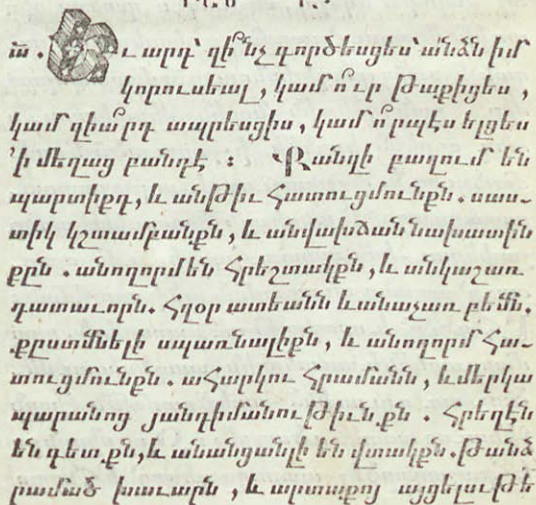 ա. Եւ արդ՝ զի՞նչ գործեսցես՝ անձն իմ
կորուսեալ, կամ ո՞ւր թաքիցես,
կամ զիա՞րդ ապրեսցիս, կամ ո՞րպէս ելցես
՚ի մեղաց բանդէ : Քանզի բազում են
պարտիքդ, և անթիւ հատուցմունքն. սաս-
տիկ կշտամբանքն, և անվախճան նախատին
քըն. անողորմ են հրեշտակքն, և անկաշառ
դատաւորն. հզօր ատեանն և անաչառ բեմն.
քըստմնելի սպառնալիքն, և անողորմ հա-
տուցմունքն. ահարկու հրամանն, և մերկա
պարանոց յանդիմանութիւնքն. հրեղէն
են գետքն, և անանցանելի են վտակքն. թանձ
րամած խաւարն, և արտաքոյ այցելութե